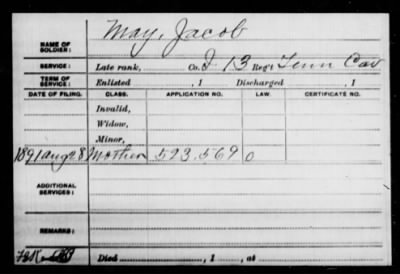 NAME OF SOLDIER: May, Jacob
SERVICE: Late rank, Co. I 13 Reg't Tenn Cav
TERM OF SERVICE: Enlisted , 1 Discharged , 1
DATE OF FILING. CLASS. APPLICATION NO. LAW. CERTIFICATE NO.
Invalid,
Widow,
Minor,
1891 Aug 28 Mother 523.569 O
ADDITIONAL SERVICES:
REMARKS:
Died , 1 , at